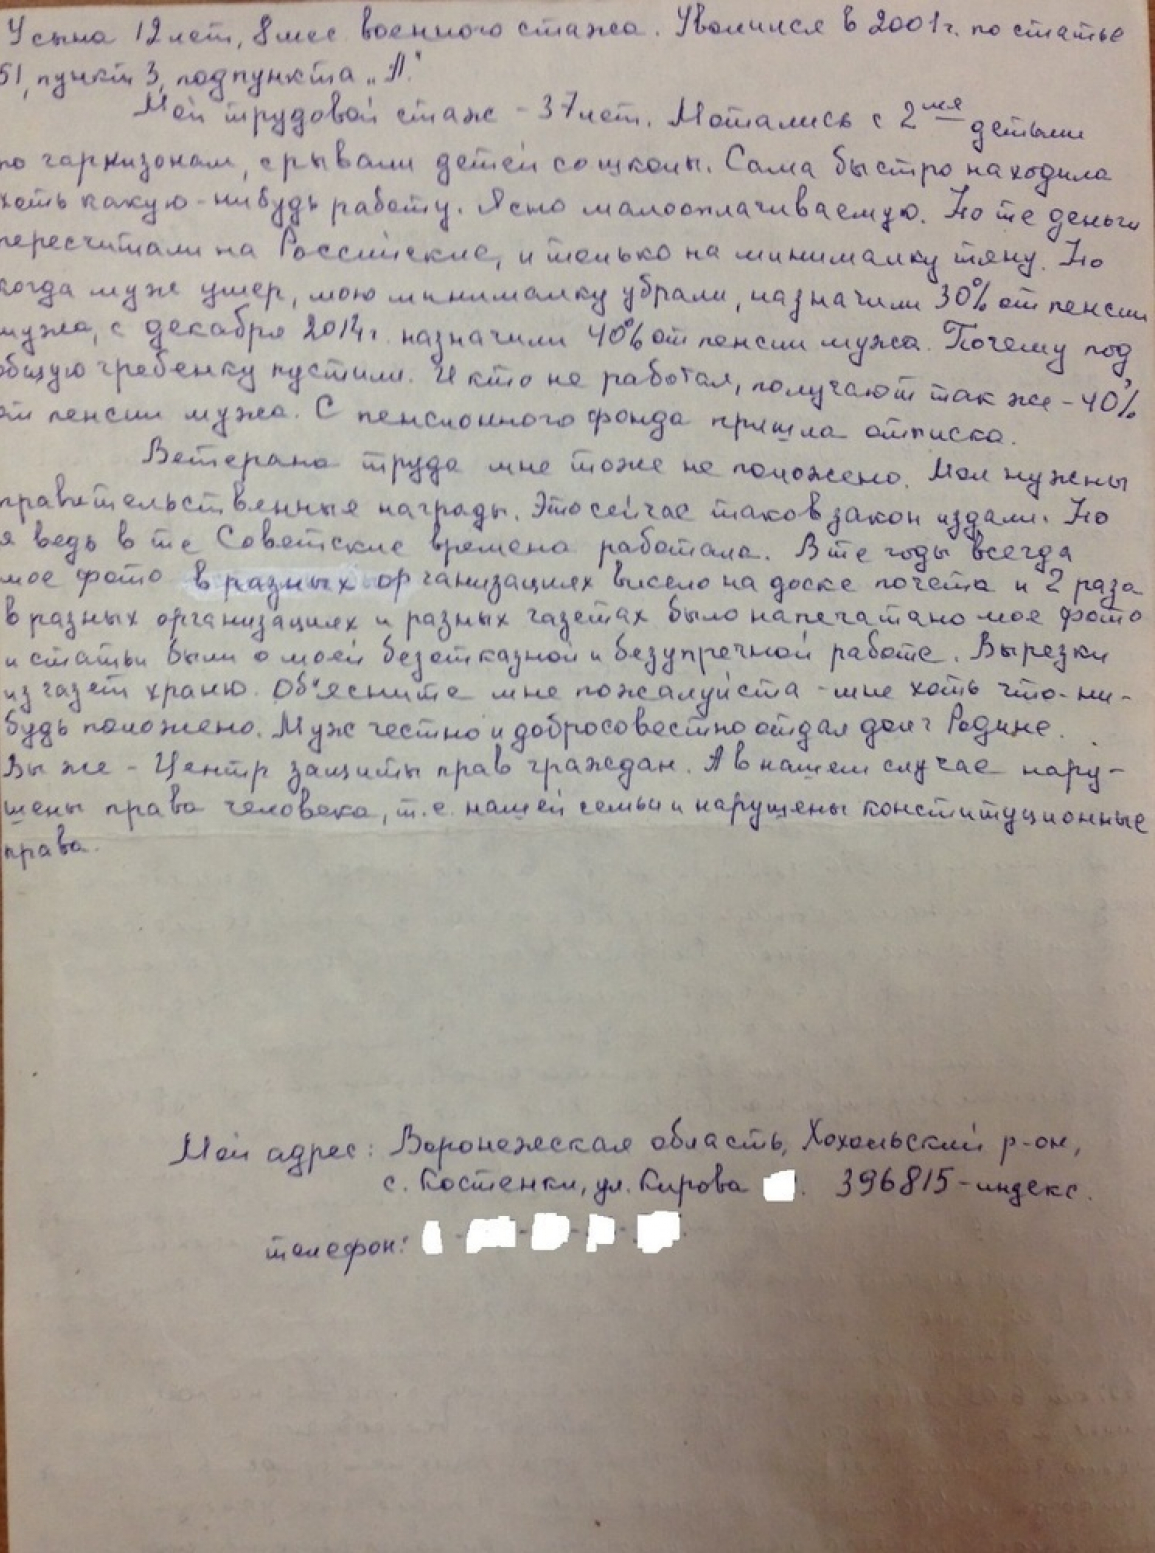 У сына 12 лет, 8 мес военного стажа. Уволился в 2001г. по статье
51, пункт 3, подпункта „А."
Мой трудовой стаж - 37 лет. Мотались с 2мя детьми
по гарнизонам, срывали детей со школы. Сама быстро находила
хоть какую-нибудь работу. Ясно малооплачиваемую. Но те деньги
пересчитали на Российские, и только на минималку тяну. Но
когда муж умер, мою минималку убрали, назначили 30% от пенсии
мужа, с декабря 2014г. назначили 40% от пенсии мужа. Почему под
общую гребенку пустили. И кто не работал, получают так же - 40%
от пенсии мужа. С пенсионного фонда пришла отписка.
Ветерана труда мне тоже не положено. Мол нужны
правительственные награды. Это сейчас таков закон издали. Но
я ведь в те Советские времена работала. В те годы всегда
мое фото в разных организациях висело на доске почета и 2 раза
в разных организациях и разных газетах было напечатано мое фото
и статьи были о моей безотказной и безупречной работе. Вырезки
из газет храню. Об'ясните мне пожалуйста - мне хоть что-ни-
будь положено. Муж честно и добросовестно отдал долг Родине.
Вы же - Центр защиты прав граждан. А в нашем случае нару-
шены права человека, т.е. нашей семьи и нарушены конституционные
права.
Мой адрес: Воронежская область, Хохольский р-он,
с. Костенки, ул. Кирова . 396815 - индекс.
телефон: